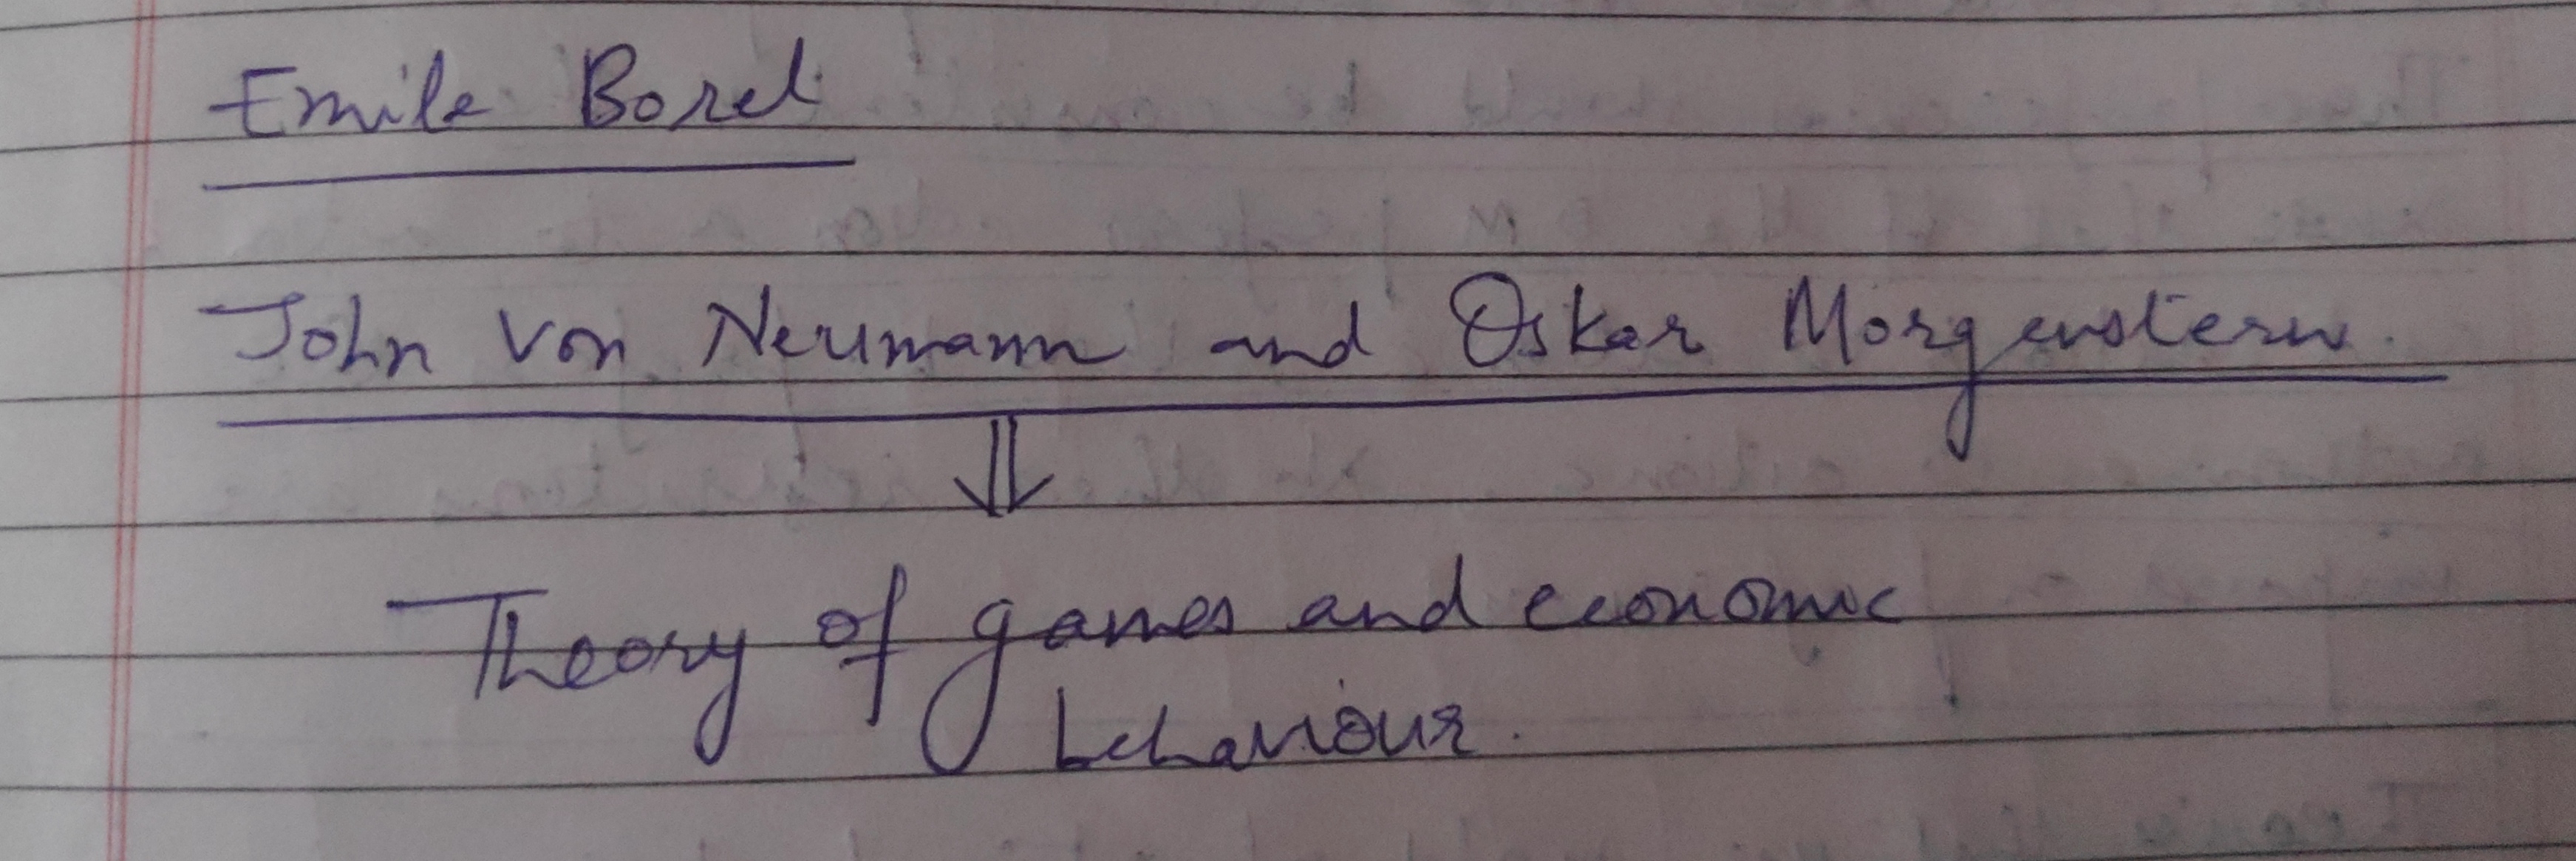 Emile Borel
John Von Neumann and Oskar Morgenstern.
Theory of games and economic
behaviour.